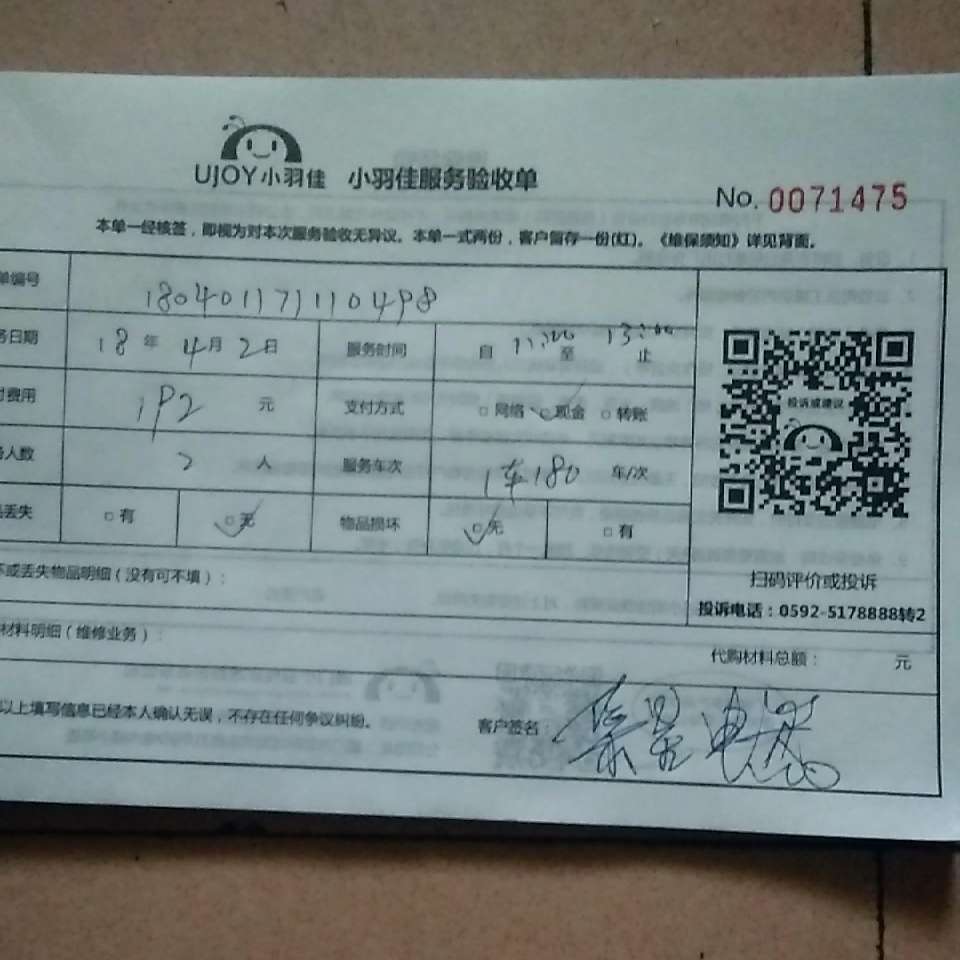 UJOY小羽佳 小羽佳服务验收单
No. 0071475
本单一经核签，即视为对本次服务验收无异议。本单一式两份，客户留存一份(红)。《维保须知》详见背面。
单编号 180401171110498
务日期 18年 4月 2日 服务时间 自 11:00 至 13:00 止
付费用 192 元 支付方式 □网络 □现金 □转账
务人数 2 人 服务车次 1车180 车/次
品丢失 □有 □无 物品损坏 □无 □有
坏或丢失物品明细（没有可不填）：
投诉或建议
扫码评价或投诉
投诉电话：0592-5178888转2
材料明细（维修业务）：
代购材料总额： 元
以上填写信息已经本人确认无误，不存在任何争议纠纷。 客户签名：